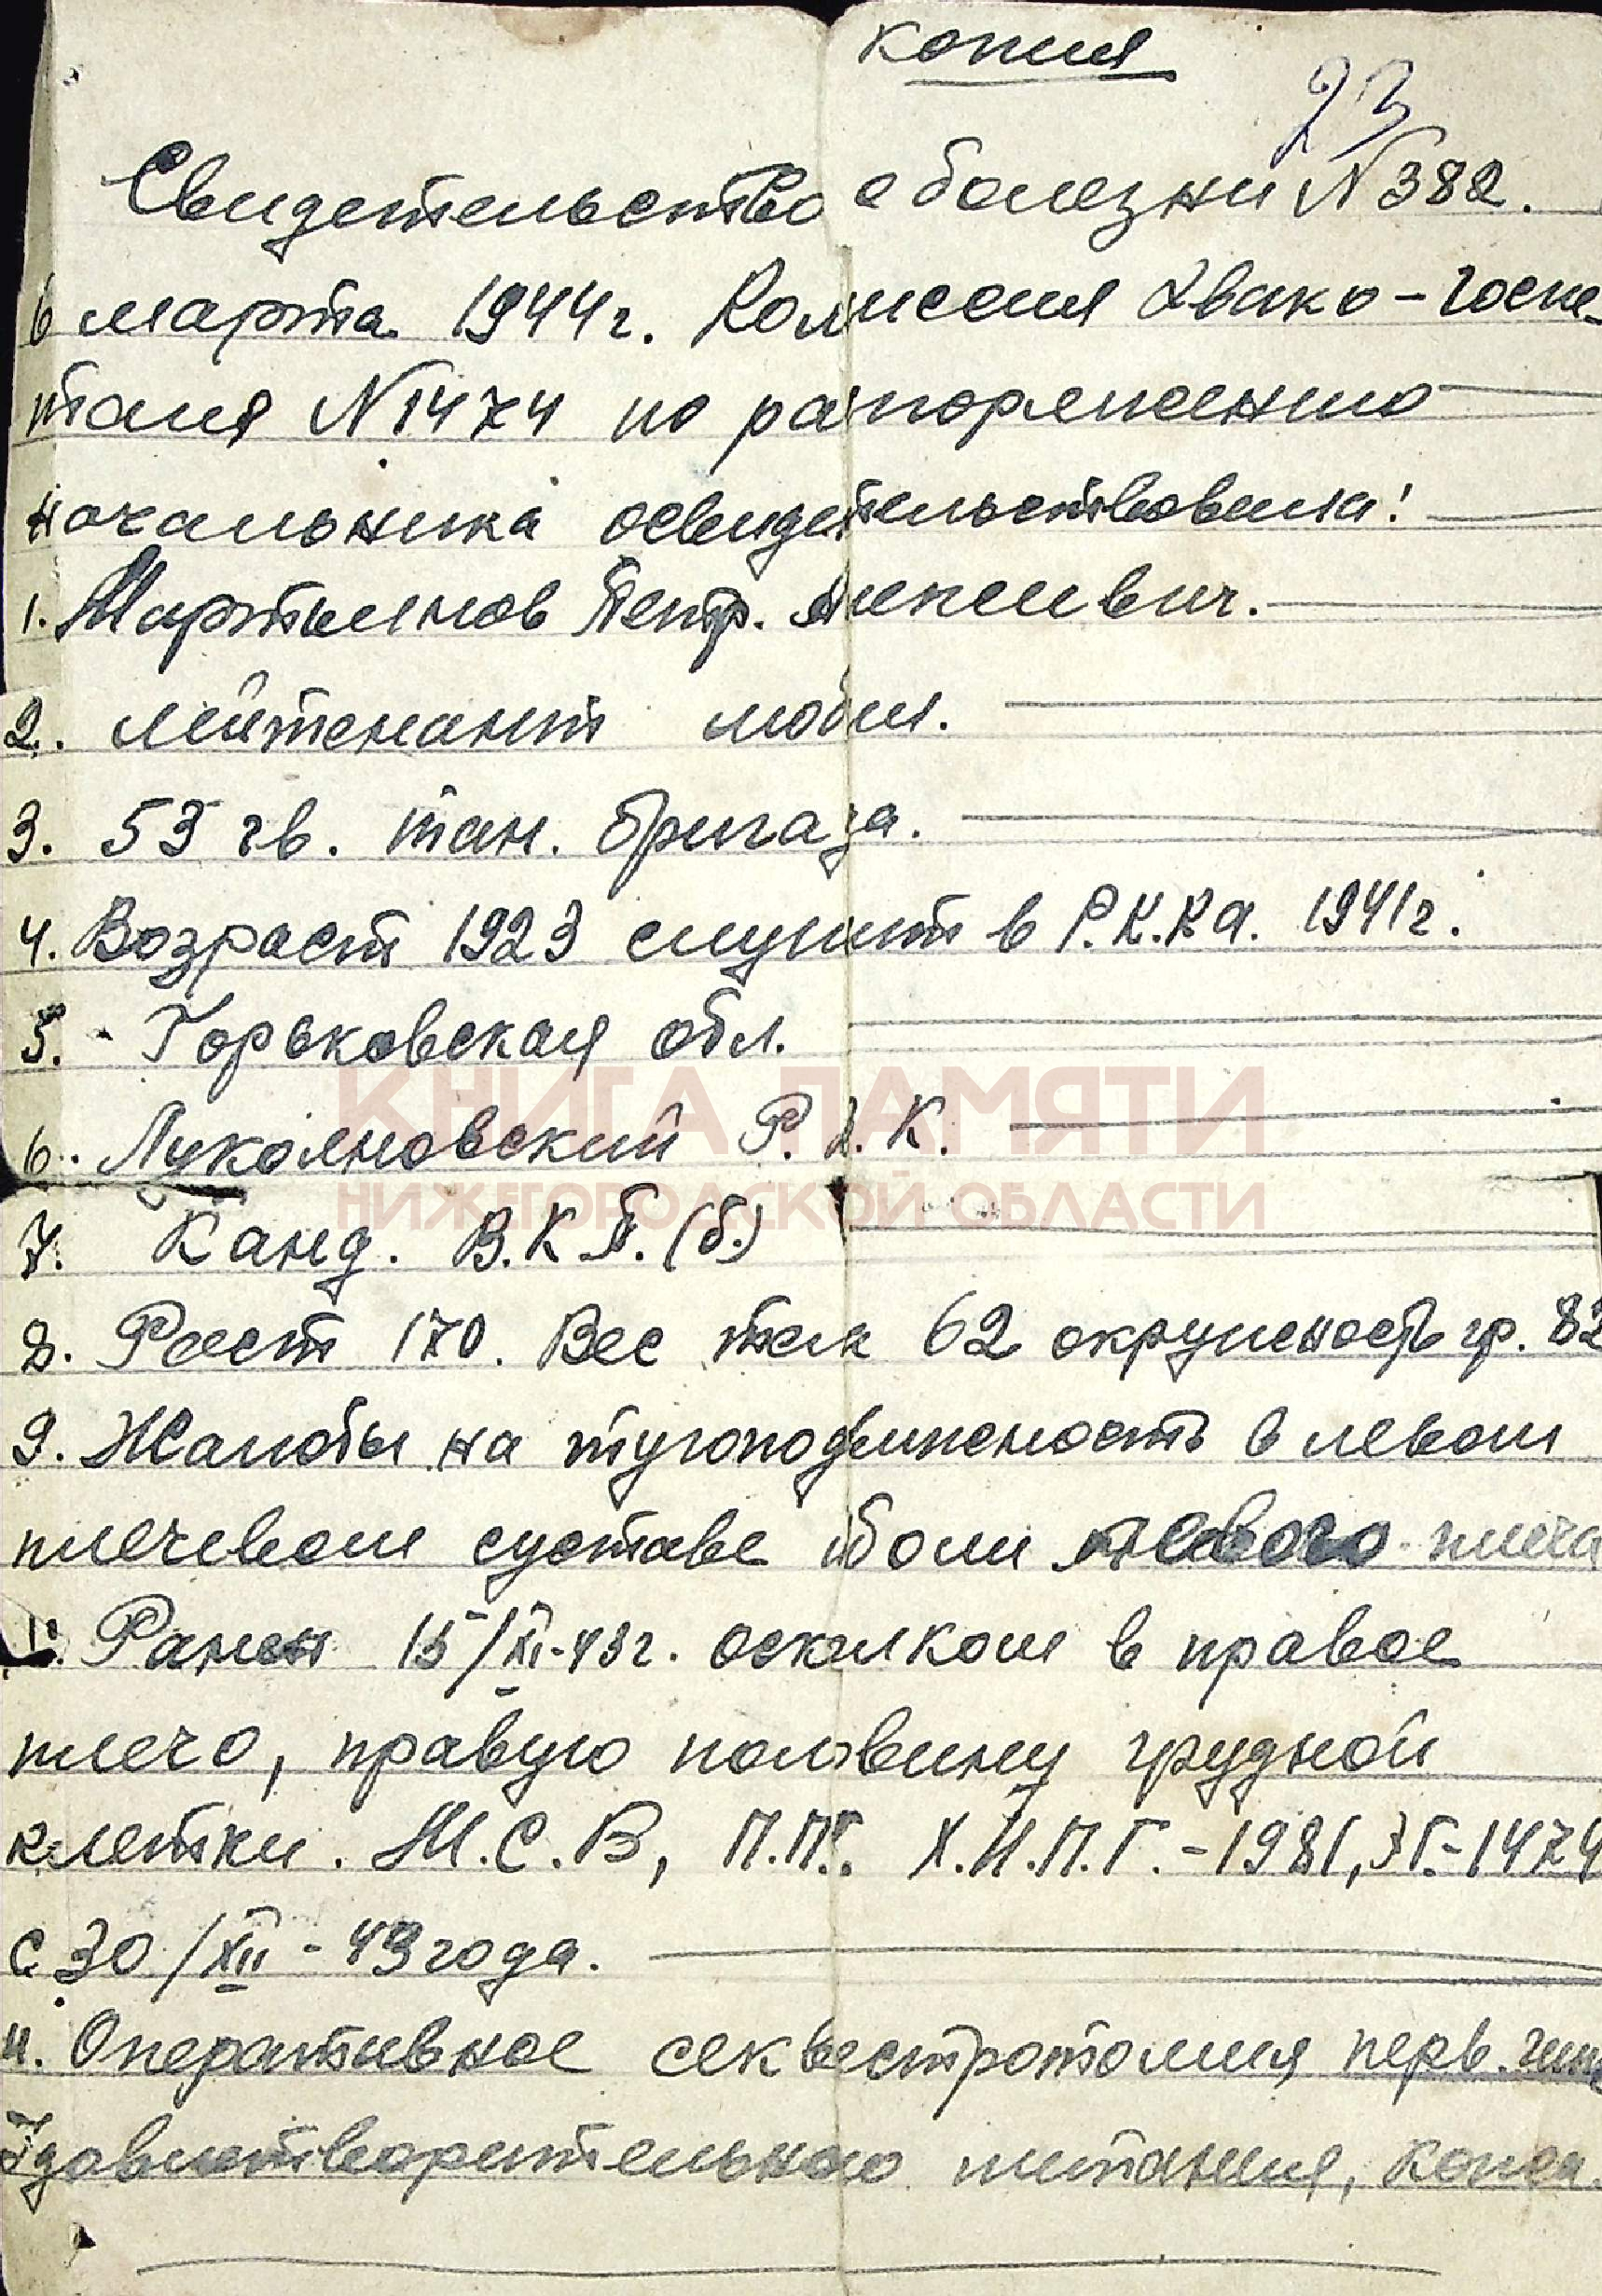 копия
23
Свидетельство о болезни N382.
6 марта 1944г. Комиссия Эвако-госпи-
таля N1474 по распоряжению
начальника освидетельствовала:
1. Мартынов Петр.
2. лейтенант
3. 53 гв. тан. бригада.
4. Возраст 1923 служит в Р.К.Ка. 1941г.
5. Горьковская обл.
КНИГА ПАМЯТИ
6. Лукояновский Р.В.К.
НИЖЕГОРОДСКОЙ ОБЛАСТИ
7. Канд. В.К.П.(б.)
8. Рост 170. Вес тела 62 окружность гр. 82
9. Жалобы на тугоподвижность в левом
плечевом суставе боли левого плеча
Ранен 15/XI-43г. осколком в правое
плечо, правую половину грудной
клетки. М.С.В, П.П.Г. Х.П.П.Г.-1981, ЭГ.-1474
с 30/XII-43 года.
11. Оперативное секвестротомия перв.
Удовлетворительного питания, кожн.